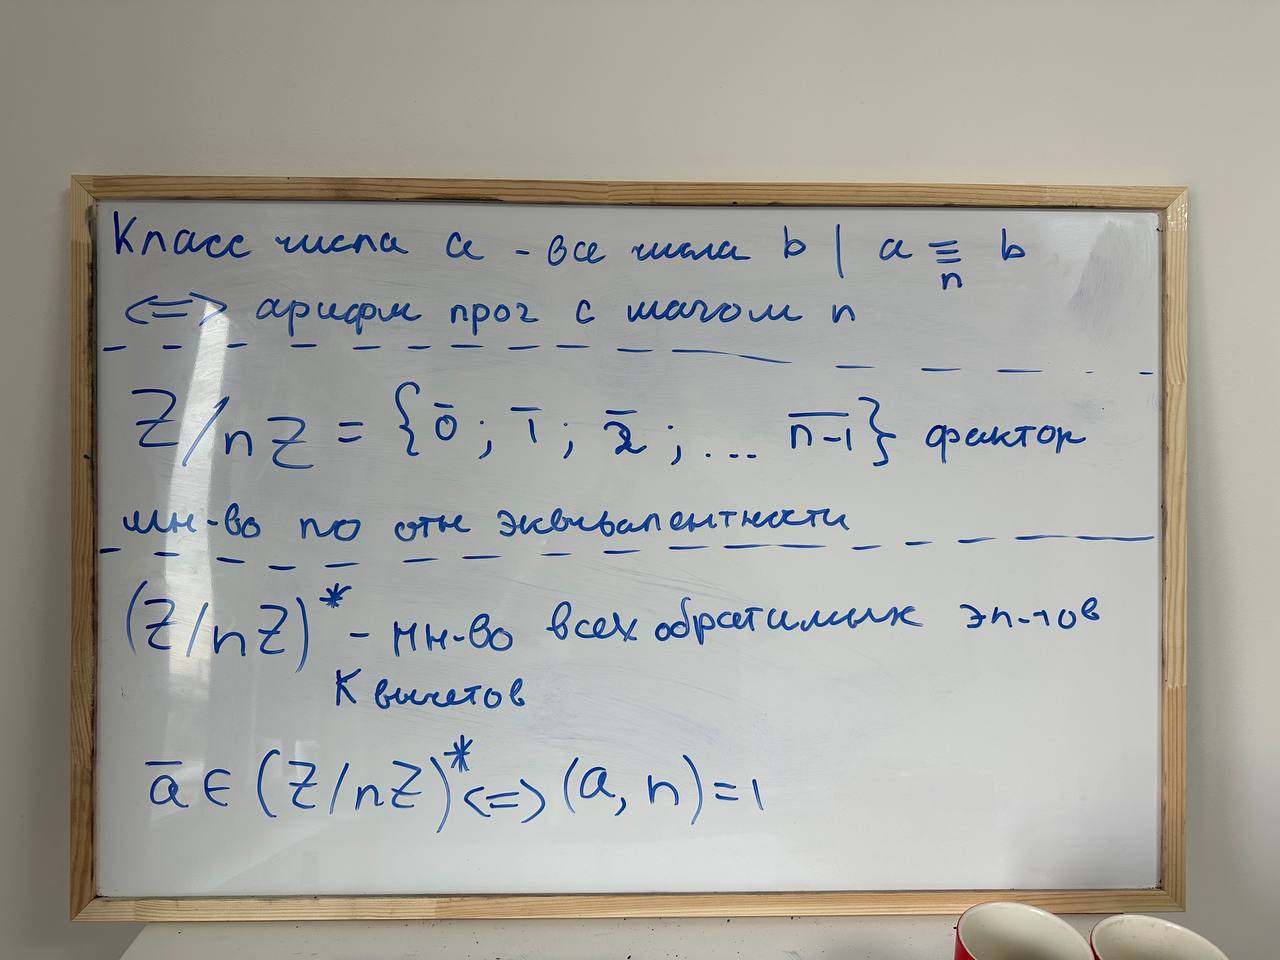 Класс числа a - все числа b | a ≡ b
n
<=> арифм прог с шагом n
Z/nZ = {0̅; 1̅; 2̅; ... n̅-̅1̅} фактор
мн-во по отн эквивалентности
(Z/nZ)* - мн-во всех обратимых эл-тов
К вычетов
a̅ ∈ (Z/nZ)* <=> (a, n) = 1